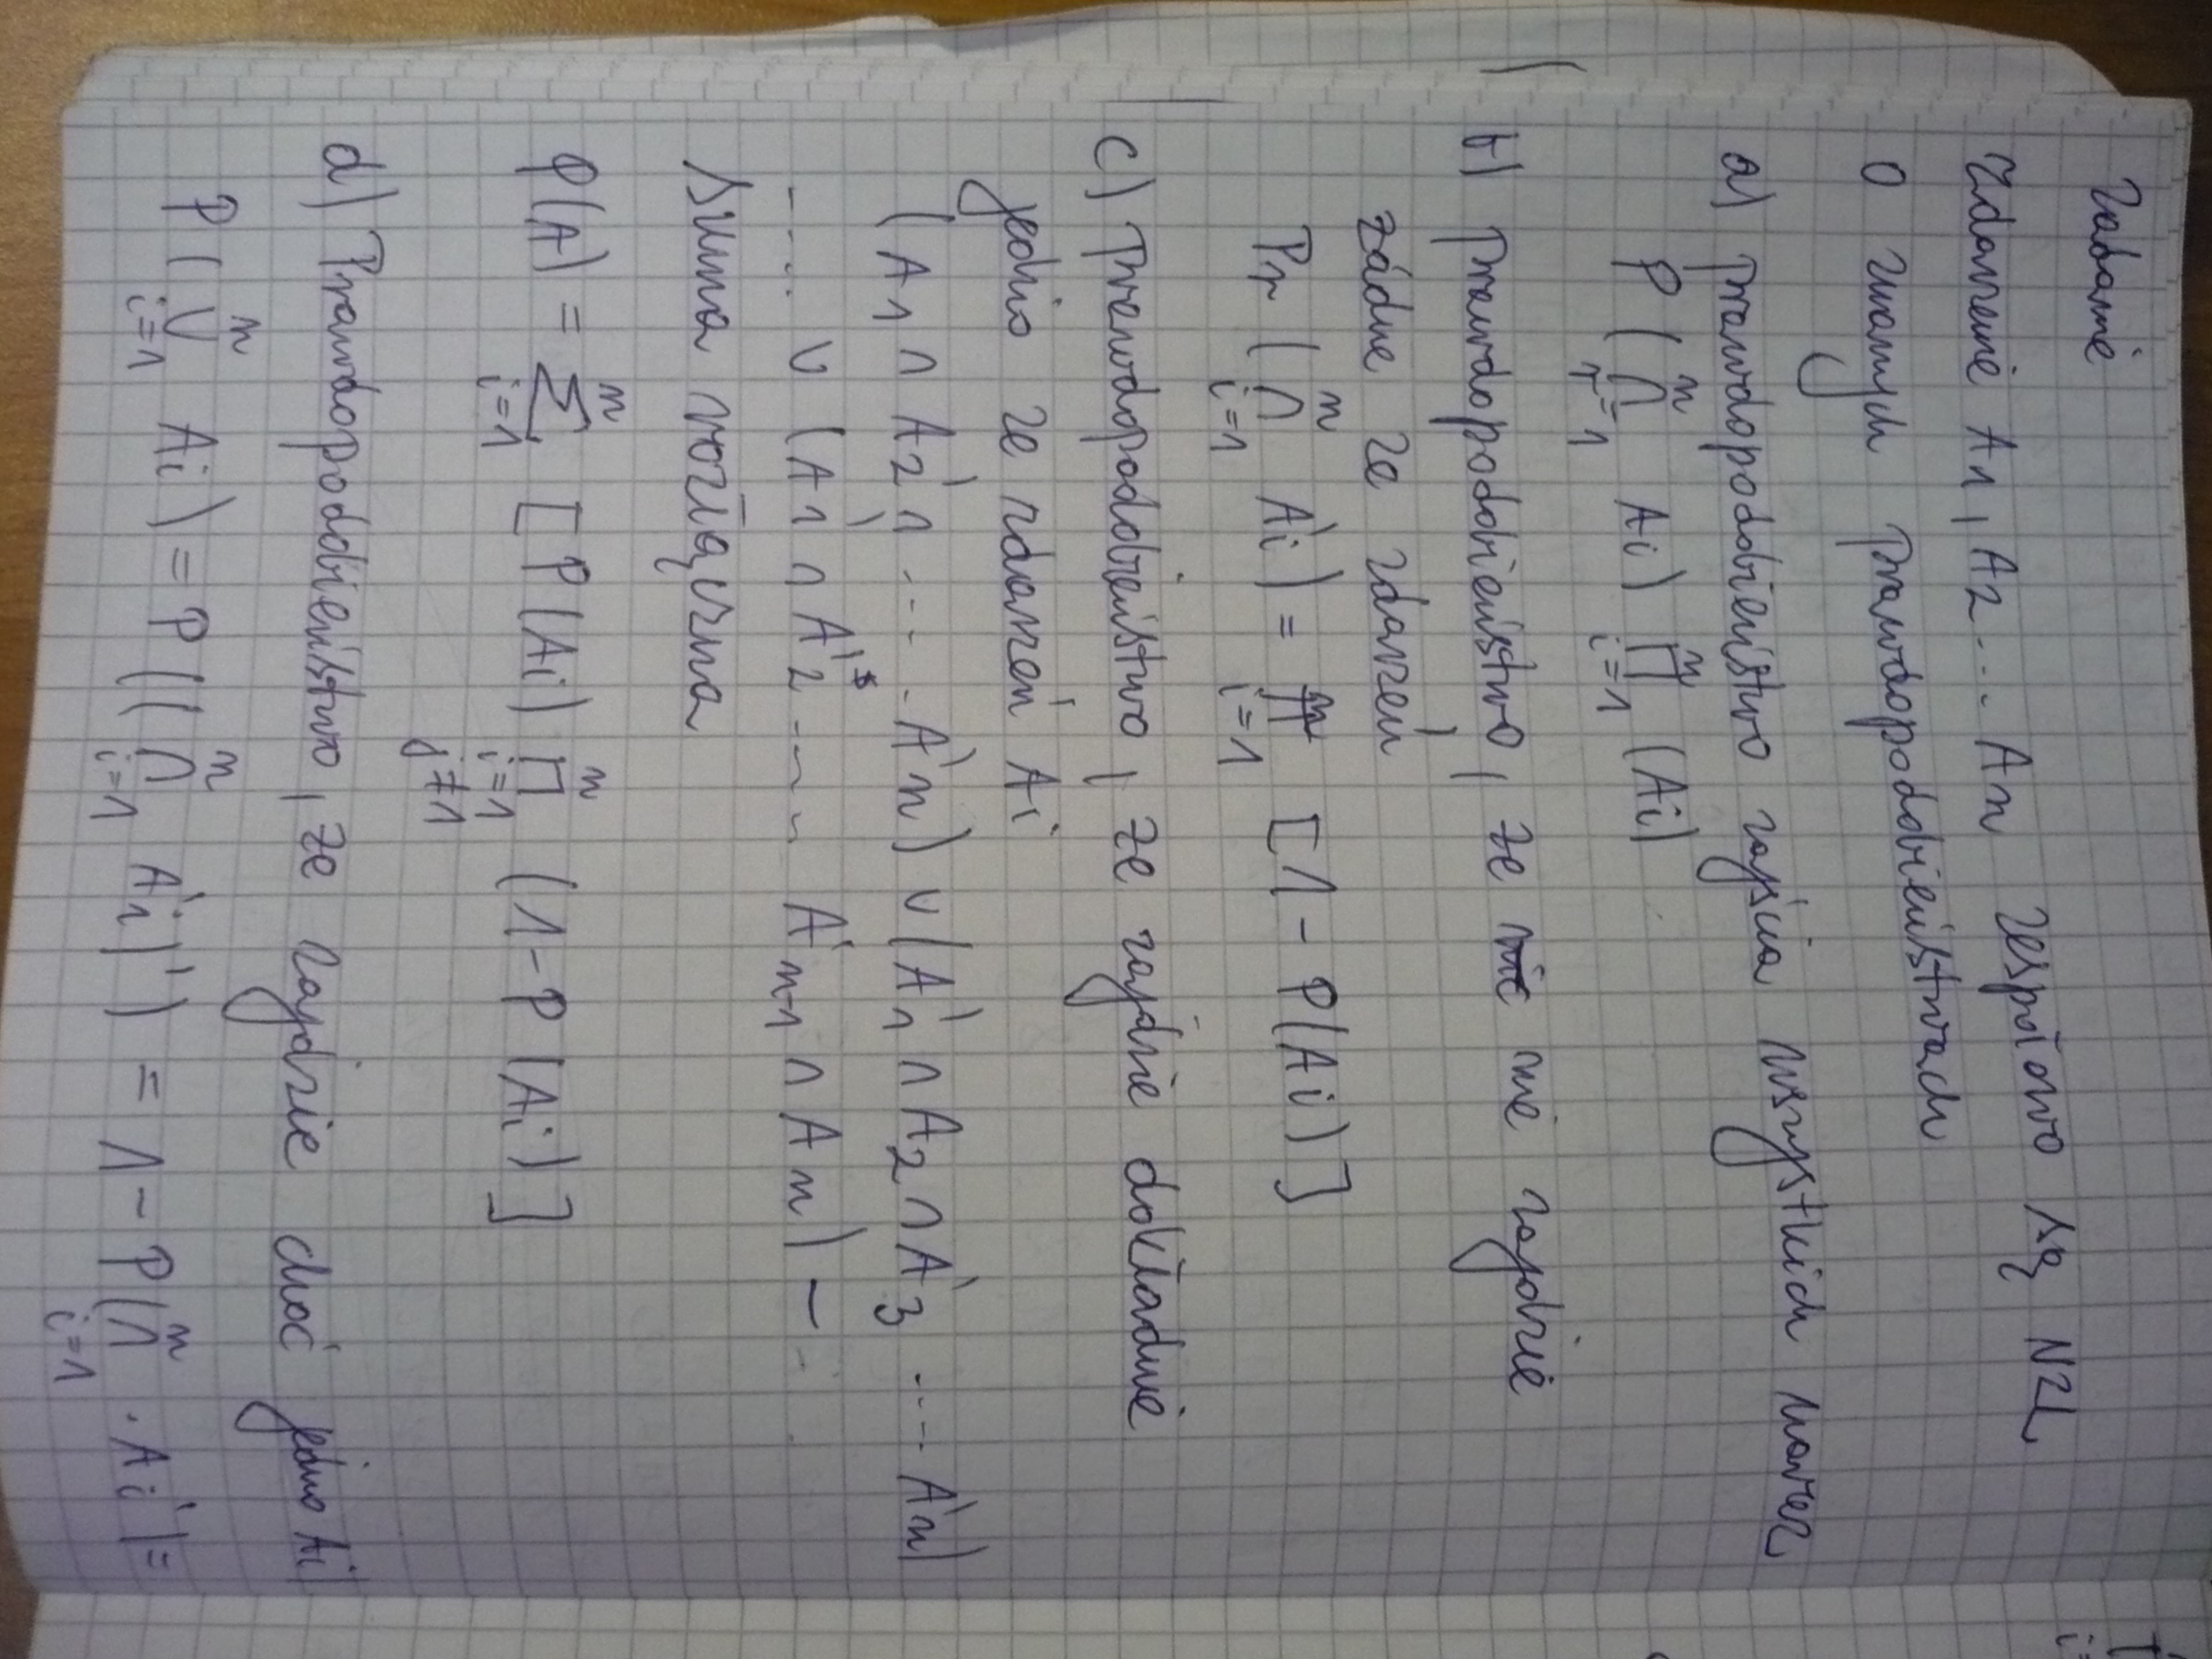 Zadanie
Zdarzenie A1, A2... An zespołowo są NZL
O znanych prawdopodobieństwach
a) Prawdopodobieństwo zajścia wszystkich naraz
P ( n ∩ r=1 Ai ) n ∏ i=1 (Ai)
b) Prawdopodobieństwo, że nie zajdzie
żadne ze zdarzeń
Pr ( n ∩ i=1 A'i ) = n ∏ i=1 [1 - P(Ai)]
c) Prawdopodobieństwo, że zajdzie dokładnie
jedno ze zdarzeń Ai
(A1 ∩ A2' ∩ .... A'n) ∪ (A'1 ∩ A2 ∩ A'3 .... A'n)
.... ∪ (A1' ∩ A2' .... A'n-1 ∩ An) -
suma rozłączna
P(A) = n ∑ i=1 [P(Ai) n ∏ i=1 j≠1 (1-P(Ai)]
d) Prawdopodobieństwo, że zajdzie choć jedno Ai
P ( n ∪ i=1 Ai ) = P (( n ∩ i=1 A'i )') = 1 - P( n ∩ i=1 Ai' ) =